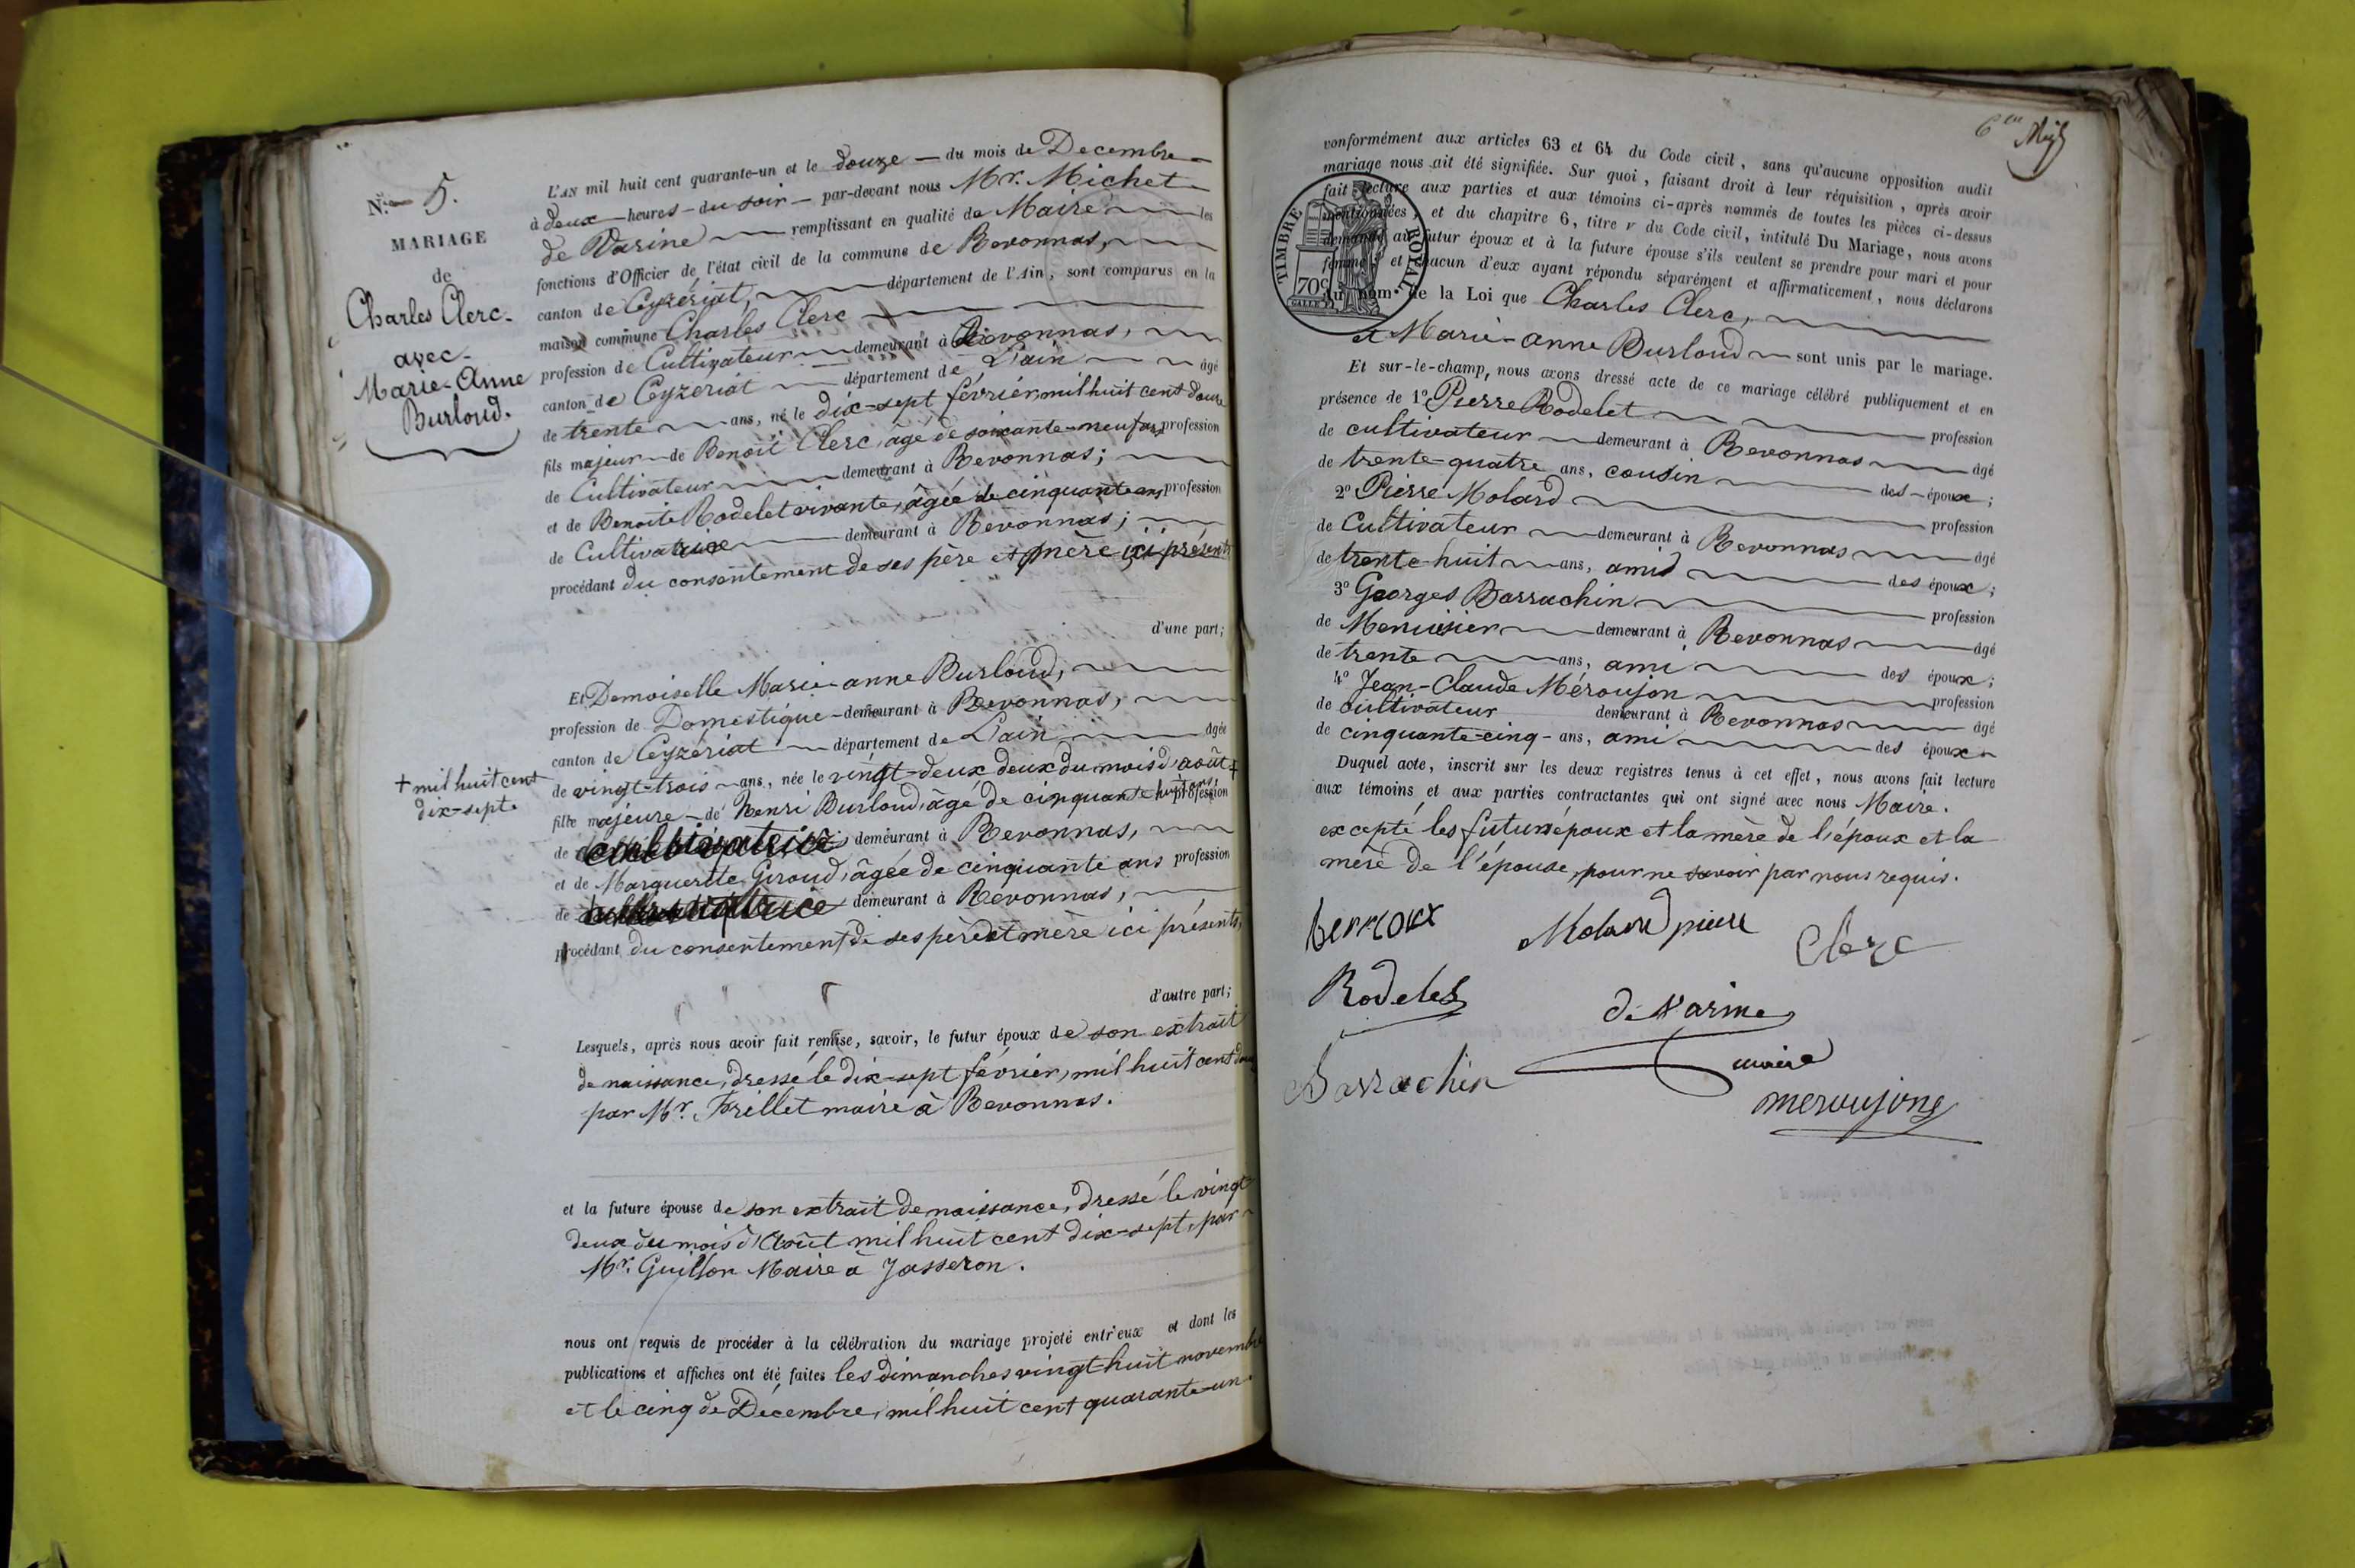 N.º 5.
MARIAGE
de
Charles Clerc.
avec
Marie-Anne
Burloud.
L'AN mil huit cent quarante-un et le douze du mois de Decembre
à deux heures du soir par-devant nous Mr. Michet
de Varine remplissant en qualité de Maire les
fonctions d'Officier de l'état civil de la commune de Revonnas,
canton de Ceyzériat, département de l'Ain, sont comparus en la
maison commune Charles Clerc
profession de Cultivateur demeurant à Revonnas,
canton de Ceyzeriat département de L'ain âgé
de trente ans, né le dix-sept février mil huit cent douze
fils majeur de Benoit Clerc, âgé de soixante-neuf ans profession
de Cultivateur demeurant à Revonnas;
et de Benoite Rodelet vivante, âgée de cinquante ans profession
de Cultivatrice demeurant à Revonnas;
procédant du consentement de ses père et mère ici présents
d'une part;
Et Demoiselle Marie-anne Burloud,
profession de Domestique demeurant à Revonnas,
canton de Ceyzériat département de L'ain âgée
de vingt-trois ans, née le vingt-deux deux du mois d'août +
+ mil huit cent
dix-sept.
fille majeure de Henri Burloud, âgé de cinquante huit ans, profession
de demeurant à Revonnas,
et de Marguerite Giroud, âgée de cinquante ans profession
de demeurant à Revonnas,
procédant du consentement de ses père et mère ici présents,
d'autre part;
Lesquels, après nous avoir fait remise, savoir, le futur époux de son extrait
de naissance, dressé le dix-sept février, mil huit cent douze
par Mr. Frillet maire à Revonnas.
et la future épouse de son extrait de naissance, dressé le vingt
deux du mois d'Août mil huit cent dix-sept, par
Mr. Guillon Maire à Jasseron.
nous ont requis de procéder à la célébration du mariage projeté entr'eux et dont les
publications et affiches ont été faites les dimanches vingt-huit novembre
et le cinq de Décembre, mil huit cent quarante-un.
conformément aux articles 63 et 64 du Code civil, sans qu'aucune opposition audit
mariage nous ait été signifiée. Sur quoi, faisant droit à leur réquisition, après avoir
fait lecture aux parties et aux témoins ci-après nommés de toutes les pièces ci-dessus
mentionnées, et du chapitre 6, titre v du Code civil, intitulé Du Mariage, nous avons
demandé au futur époux et à la future épouse s'ils veulent se prendre pour mari et pour
femme; et chacun d'eux ayant répondu séparément et affirmativement, nous déclarons
TIMBRE ROYAL
70c
Au nom de la Loi que Charles Clerc,
et Marie-anne Burloud sont unis par le mariage.
Et sur-le-champ, nous avons dressé acte de ce mariage célébré publiquement et en
présence de 1º Pierre Rodelet profession
de cultivateur demeurant à Revonnas âgé
de trente-quatre ans, cousin des époux;
2º Pierre Molard profession
de Cultivateur demeurant à Revonnas âgé
de trente-huit ans, amis des époux;
3º Georges Barrachin profession
de Menuisier demeurant à Revonnas âgé
de trente ans, ami des époux;
4º Jean-Claude Méroujon profession
de cultivateur demeurant à Revonnas âgé
de cinquante-cinq ans, ami des époux
Duquel acte, inscrit sur les deux registres tenus à cet effet, nous avons fait lecture
aux témoins et aux parties contractantes qui ont signé avec nous Maire.
excepté les futurs époux et la mère de l'époux et la
mère de l'épouse, pour ne savoir par nous requis.
Molard pierre
Clerc
Rodelet
de Varine
maire
Barrachin
meroujong